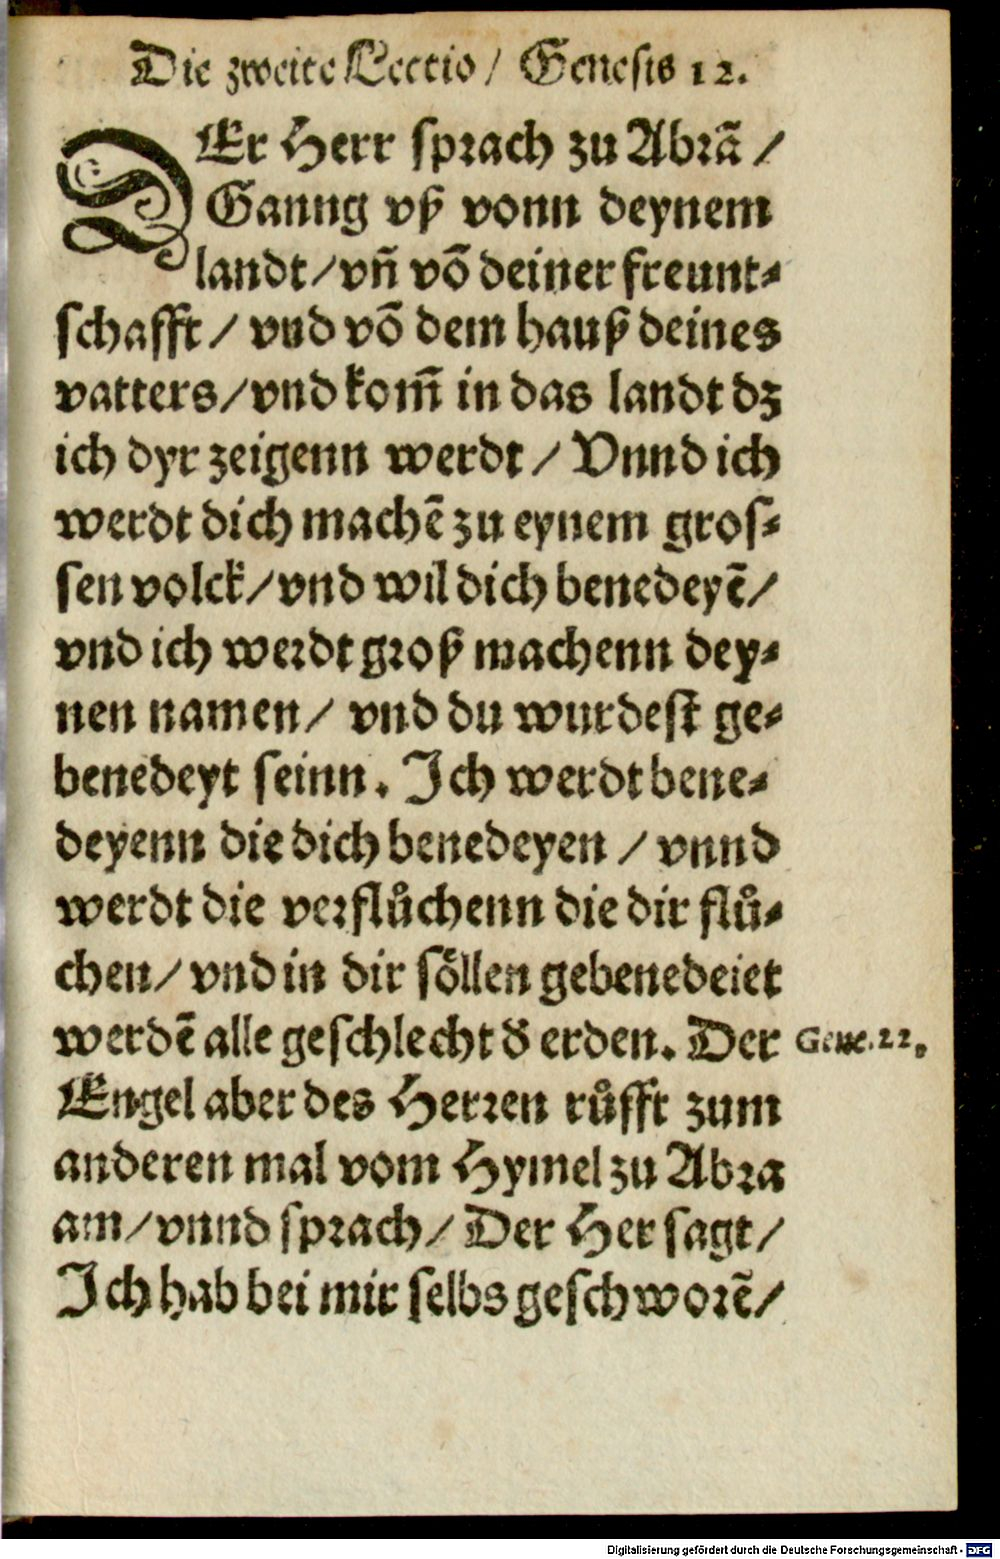 Die zweite Lectio / Genesis 12.
DEr Herr sprach zu Abrã /
Ganng vß vonn deynem
landt / vñ võ deiner freunt⸗
schafft / vnd võ dem hauß deines
vatters / vnd kom̃ in das landt dz
ich dyr zeigenn werdt / Vnnd ich
werdt dich machẽ zu eynem gros⸗
sen volck / vnd wil dich benedeyẽ /
vnd ich werdt groß machenn dey⸗
nen namen / vnd du wurdest ge⸗
benedeyt seinn. Ich werdt bene⸗
deyenn die dich benedeyen / vnnd
werdt die verflůchenn die dir flů⸗
chen / vnd in dir söllen gebenedeiet
werdẽ alle geschlecht d̕ erden. Der
Gene. 22.
Engel aber des Herren růfft zum
anderen mal vom Hymel zu Abra
am / vnnd sprach / Der Her sagt /
Ich hab bei mir selbs geschworẽ /
Digitalisierung gefördert durch die Deutsche Forschungsgemeinschaft - DFG